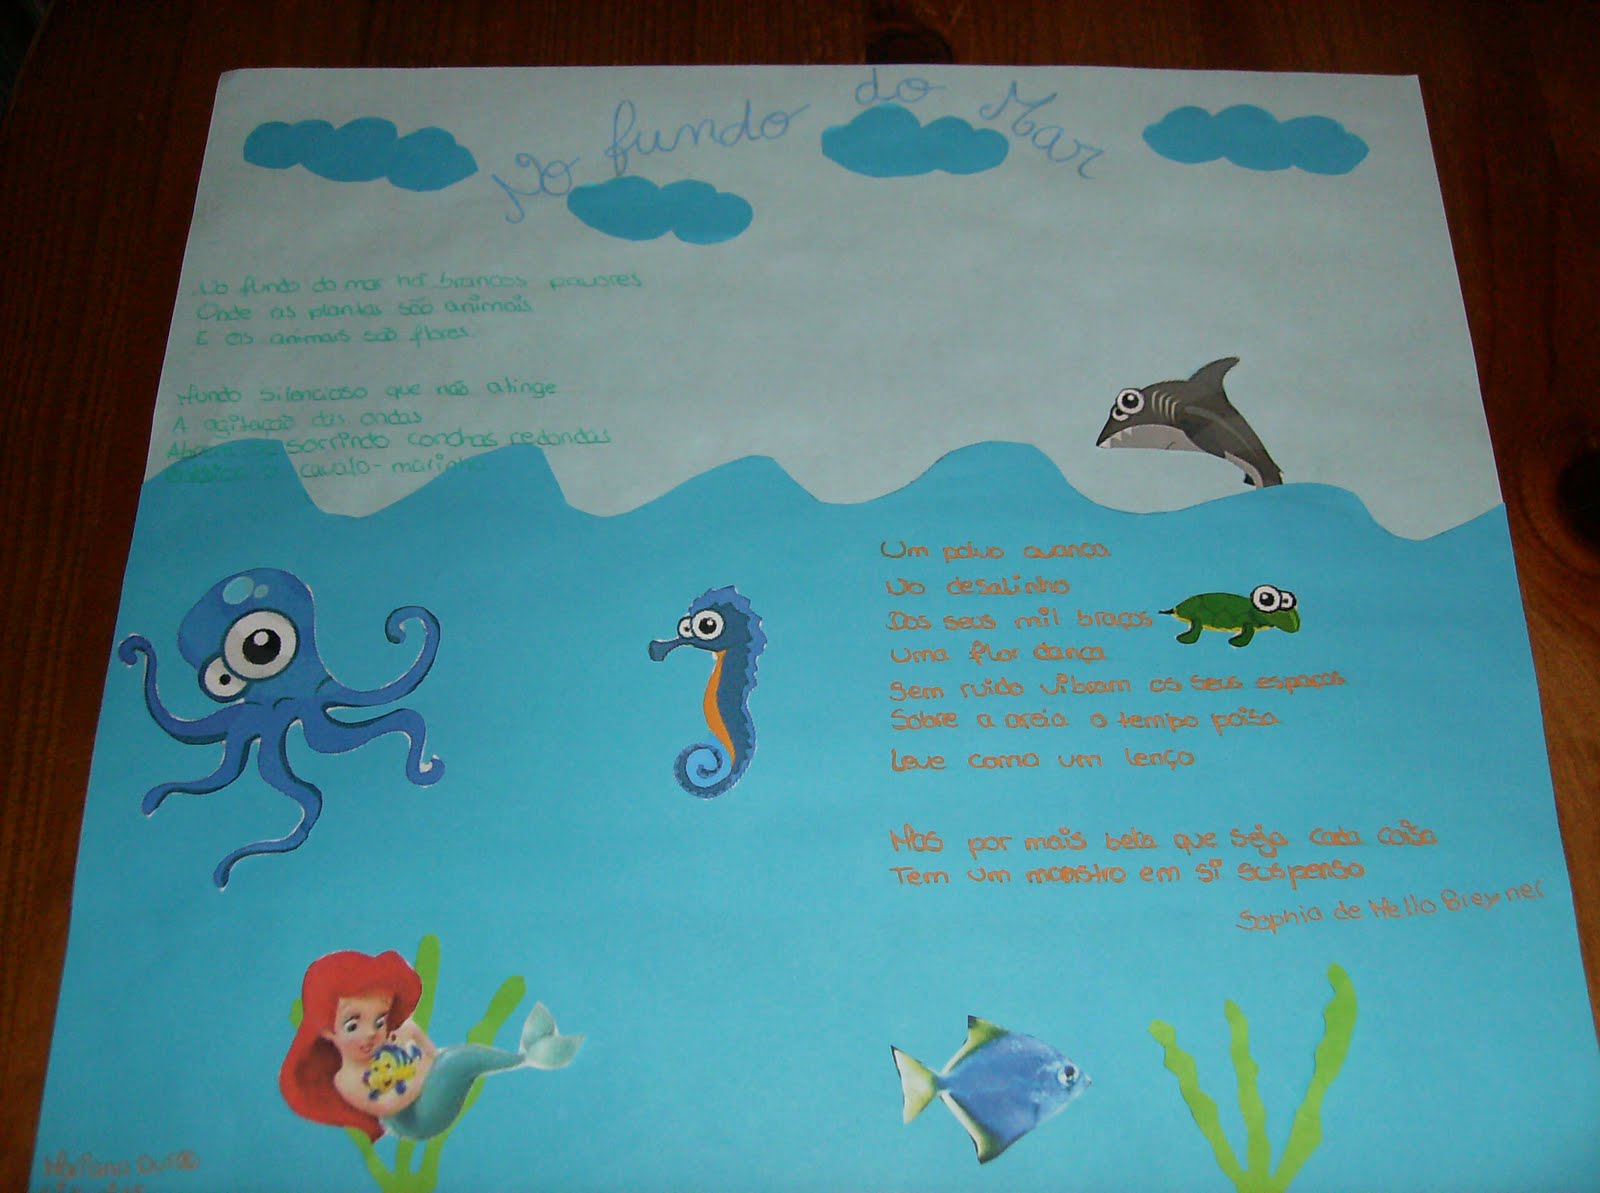 No fundo do Mar
No fundo do mar há brancos pavores
Onde as plantas são animais
E os animais são flores.
Mundo silencioso que não atinge
A agitação das ondas
Abrem-se sorrindo conchas redondas
o cavalo-marinho
Um polvo avança
No desalinho
Dos seus mil braços
Uma flor dança
Sem ruído vibram os seus espaços
Sobre a areia o tempo poisa
Leve como um lenço
Mas por mais bela que seja cada coisa
Tem um monstro em si suspenso
Sophia de Mello Breyner
Mariana